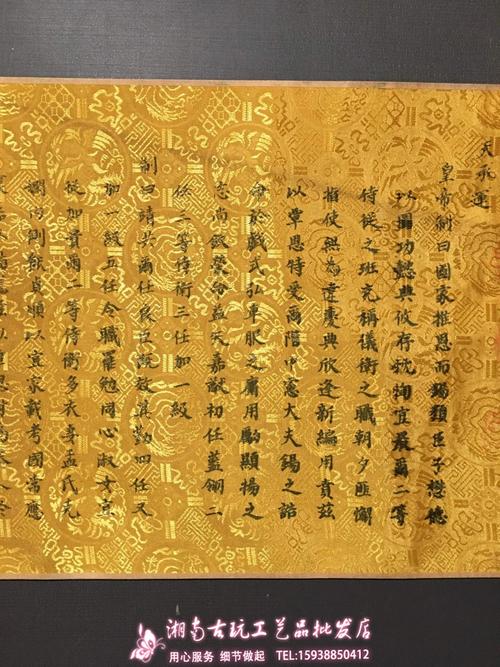 天承運
皇帝制曰國家推恩而錫類臣子懋德
以圖功懿典攸存忱恂宜展爾二等
侍從之班充稱儀衛之職朝夕匪懈
指使供為違慶典欣逢新編用賁茲
以覃恩特受爾階中憲大夫錫之誥
命於戲式弘車服之庸用勵顯揚之
志尚敬榮命益矢嘉猷初任藍翎二
任三等侍衛三任加一級
制曰靖共爾位良臣既效其勤四任又
加一級五任今職羅勉同心淑女京
從加賁爾二等侍衛多衣妻孟氏克
嫻內則能貞順以宜家載考國常應
湘南古玩工艺品批发店
用心服务 细节做起 TEL:15938850412